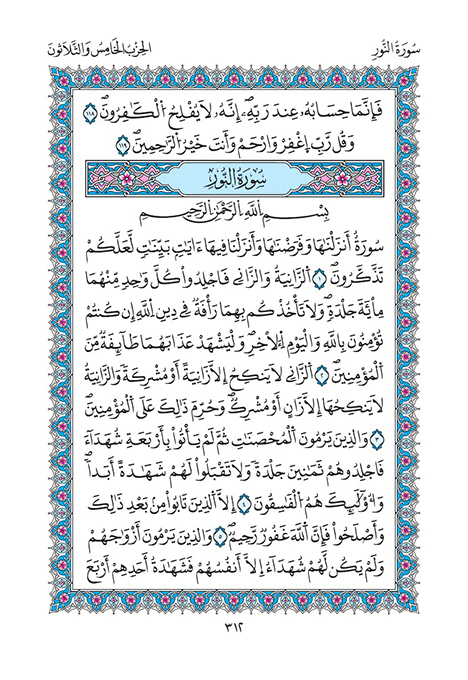 سُورَةُ النُّورِ
الحِزْبُ الخَامِسُ وَالثَّلَاثُونَ
فَإِنَّمَا حِسَابُهُۥ عِندَ رَبِّهِۦٓۖ إِنَّهُۥ لَا يُفْلِحُ الْكَٰفِرُونَۖ ١١٨
وَقُل رَّبِّ اِغْفِرْ وَارْحَمْ وَأَنتَ خَيْرُ الرَّٰحِمِينَۖ ١١٩
سُورَةُ النُّورِ
بِسْمِ اللَّهِ الرَّحْمَٰنِ الرَّحِيمِ
سُورَةٌ أَنزَلْنَٰهَا وَفَرَضْنَٰهَا وَأَنزَلْنَا فِيهَا ءَايَٰتِۢ بَيِّنَٰتٖ لَّعَلَّكُمْ
تَذَّكَّرُونَۖ ١ اَلزَّانِيَةُ وَالزَّانِي فَاجْلِدُوا كُلَّ وَٰحِدٖ مِّنْهُمَا
مِاْئَةَ جَلْدَةٖۖ وَلَا تَأْخُذْكُم بِهِمَا رَأْفَةٌ فِي دِينِ اللَّهِ إِن كُنتُمْ
تُؤْمِنُونَ بِاللَّهِ وَالْيَوْمِ اِلَاخِرِۖ وَلْيَشْهَدْ عَذَابَهُمَا طَآئِفَةٌ مِّنَ
اَلْمُؤْمِنِينَۖ ٢ اَلزَّانِي لَا يَنكِحُ إِلَّا زَانِيَةً أَوْ مُشْرِكَةٗ وَالزَّانِيَةُ
لَا يَنكِحُهَا إِلَّا زَانٍ أَوْ مُشْرِكٞۖ وَحُرِّمَ ذَٰلِكَ عَلَى اَلْمُؤْمِنِينَۖ
٣ وَالذِينَ يَرْمُونَ اَلْمُحْصَنَٰتِ ثُمَّ لَمْ يَأْتُوا بِأَرْبَعَةِ شُهَدَآءَ
فَاجْلِدُوهُمْ ثَمَٰنِينَ جَلْدَةٗ وَلَا تَقْبَلُوا لَهُمْ شَهَٰدَةً أَبَداٗۖ
وَأُوْلَٰٓئِكَ هُمُ اَلْفَٰسِقُونَ ٤ إِلَّا اَلذِينَ تَابُوا مِنۢ بَعْدِ ذَٰلِكَ
وَأَصْلَحُوا فَإِنَّ اَللَّهَ غَفُورٞ رَّحِيمٞۖ ٥ وَالذِينَ يَرْمُونَ أَزْوَٰجَهُمْ
وَلَمْ يَكُن لَّهُمْ شُهَدَآءُ إِلَّا أَنفُسُهُمْ فَشَهَٰدَةُ أَحَدِهِمْ أَرْبَعَ
٣١٢